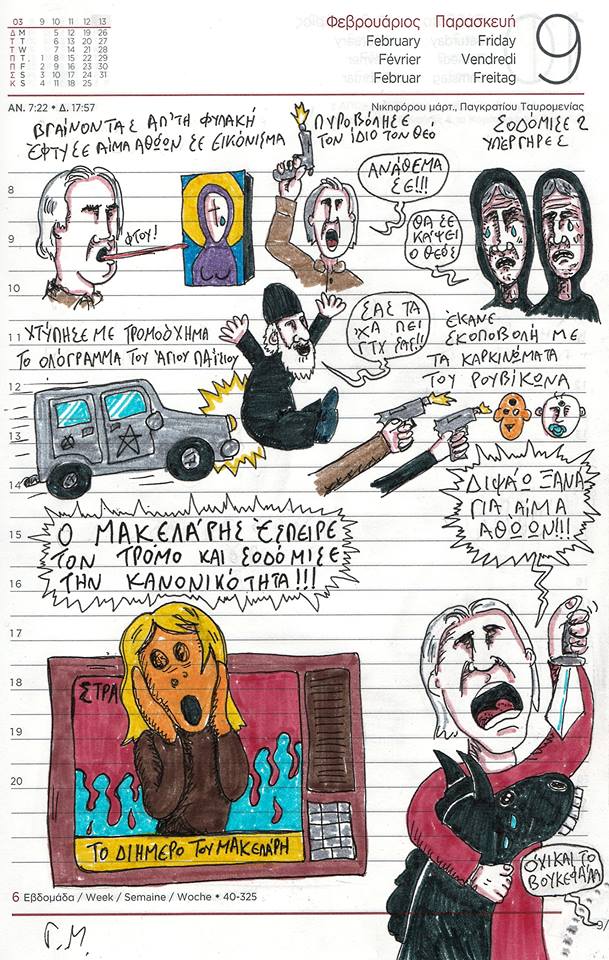 03 9 10 11 12 13
Δ M 5 12 19 26
Τ T 6 13 20 27
7 14 21 28
1 8 15 22 29
Π F 2 9 16 23 30
Σ S 3 10 17 24 31
Κ S 4 11 18 25
Φεβρουάριος Παρασκευή
February Friday
Février Vendredi
Februar Freitag
9
ΑΝ. 7:22 • Δ. 17:57
Νικηφόρου μάρτ., Παγκρατίου Ταυρομενίας
ΒΓΑΙΝΟΝΤΑΣ ΑΠ'ΤΗ ΦΥΛΑΚΗ
ΕΦΤΥΣΕ ΑΙΜΑ ΑΘΩΩΝ ΣΕ ΕΙΚΟΝΙΣΜΑ
ΠΥΡΟΒΟΛΗΣΕ
ΤΟΝ ΙΔΙΟ ΤΟΝ ΘΕΟ
ΣΟΔΟΜΙΣΕ 2
ΥΠΕΡΓΗΡΕΣ
ΦΤΟΥ!
ΑΝΑΘΕΜΑ
ΣΕ!!!
ΘΑ ΣΕ
ΚΑΨΕΙ
Ο ΘΕΟΣ
8
9
10
11
12
13
14
15
16
17
18
19
20
ΧΤΥΠΗΣΕ ΜΕ ΤΡΟΜΟΟΧΗΜΑ
ΤΟ ΟΛΟΓΡΑΜΜΑ ΤΟΥ ΑΓΙΟΥ ΠΑΪΣΙΟΥ
ΣΑΣ ΤΑ
'ΧΑ ΠΕΙ
ΓΤΧ ΣΑΣ!!
ΕΚΑΝΕ
ΣΚΟΠΟΒΟΛΗ ΜΕ
ΤΑ ΚΑΡΚΙΝΩΜΑΤΑ
ΤΟΥ ΡΟΥΒΙΚΩΝΑ
ΔΙΨΑΩ ΞΑΝΑ
ΓΙΑ ΑΙΜΑ
ΑΘΩΩΝ!!!
Ο ΜΑΚΕΛΑΡΗΣ ΕΣΠΕΙΡΕ
ΤΟΝ ΤΡΟΜΟ ΚΑΙ ΣΟΔΟΜΙΣΕ
ΤΗΝ ΚΑΝΟΝΙΚΟΤΗΤΑ!!!
ΣΤΡΑ
ΤΟ ΔΙΗΜΕΡΟ ΤΟΥ ΜΑΚΕΛΑΡΗ
ΟΧΙ ΚΑΙ ΤΟ
ΒΟΥΚΕΦΑΛΑ
6 Εβδομάδα / Week / Semaine / Woche • 40-325
9/
Γ.Μ.